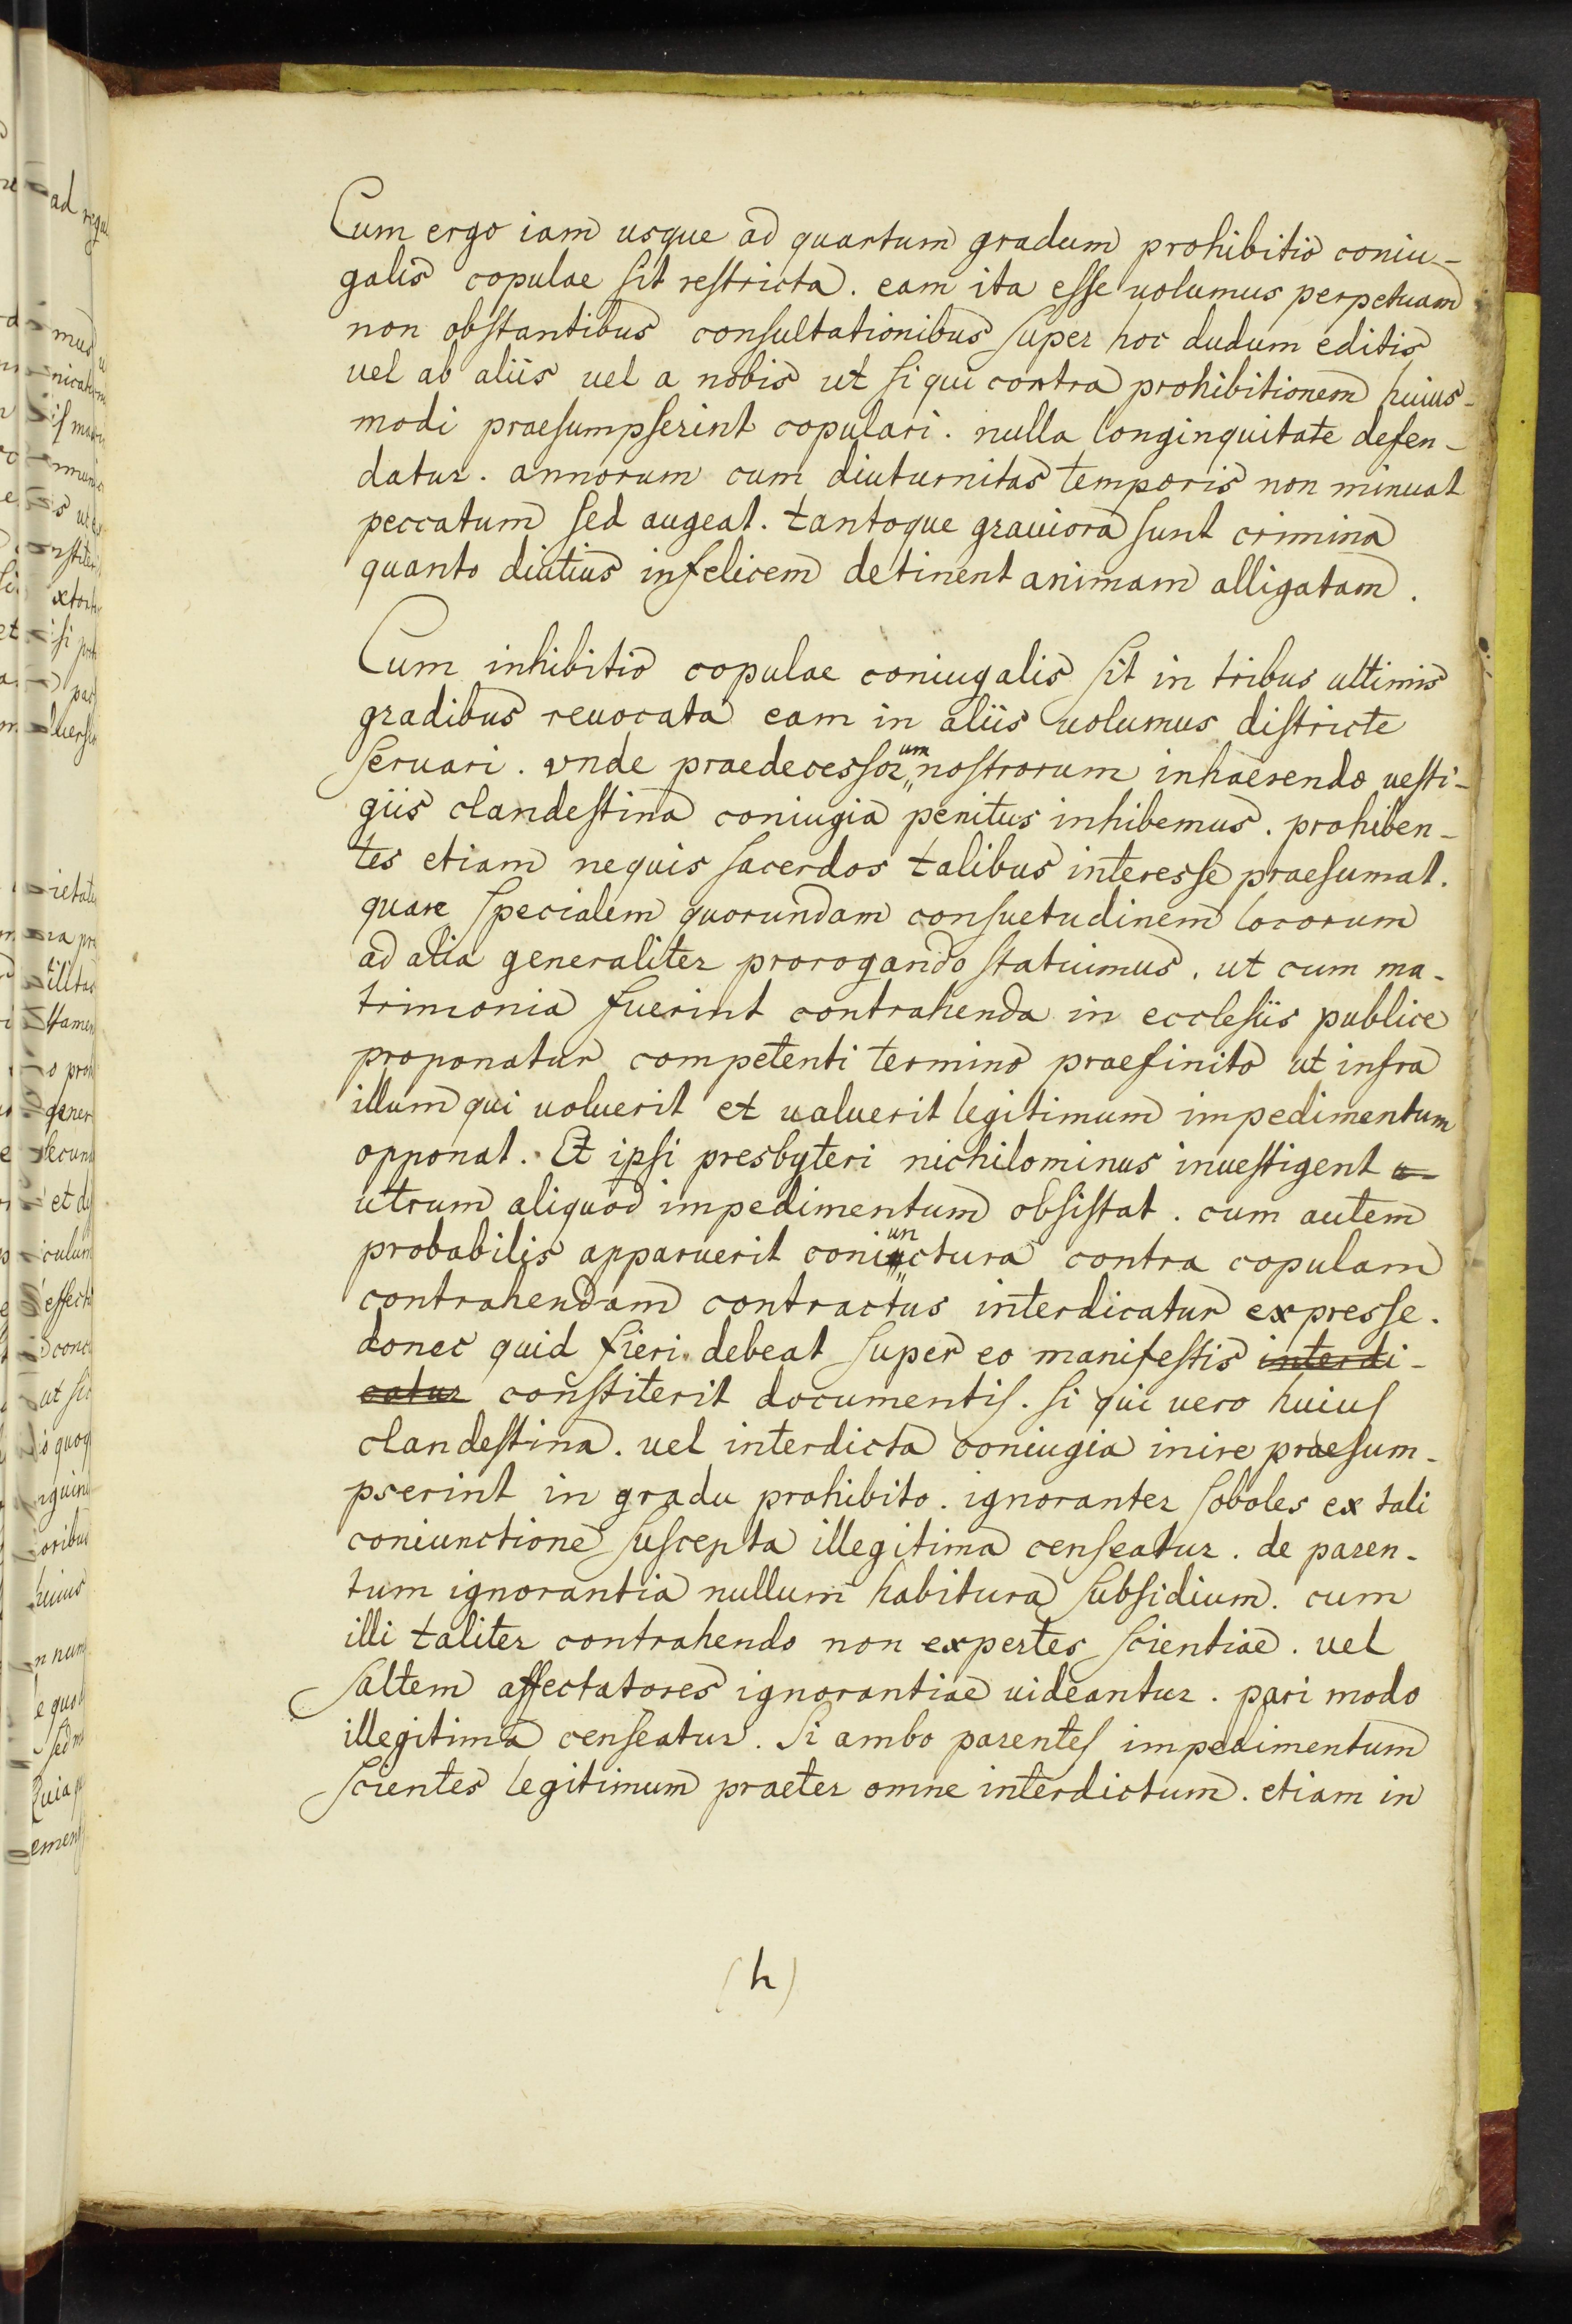 Cum ergo iam usque ad quartum gradum prohibitio coniu-
galis copulae sit restricta. eam ita esse uolumus perpetuam
non obstantibus consultationibus super hoc dudum editis
uel ab aliis uel a nobis ut si qui contra prohibitionem huius-
modi praesumpserint copulari. nulla longinquitate defen-
datur. annorum cum diuturnitas temporis non minuat
peccatum sed augeat. tantoque grauiora sunt crimina
quanto diutius infelicem detinent animam alligatam.
Cum inhibitio copulae coniugalis sit in tribus ultimis
gradibus reuocata eam in aliis uolumus districte
seruari. vnde praedecessorum nostrorum inhaerendo uesti-
giis clandestina coniugia penitus inhibemus. prohiben-
tes etiam nequis sacerdos talibus interesse praesumat.
quare specialem quorundam consuetudinem locorum
ad alia generaliter prorogando statuimus. ut cum ma-
trimonia fuerint contrahenda in ecclesiis publice
proponatur competenti termino praefinito ut infra
illum qui uoluerit et ualuerit legitimum impedimentum
opponat. Et ipsi presbyteri nichilominus inuestigent u
utrum aliquod impedimentum obsistat. cum autem
probabilis apparuerit coniunctura contra copulam
contrahendam contractus interdicatur expresse.
donec quid fieri debeat super eo manifestis interdi-
catur constiterit documentis. si qui uero huius
clandestina. uel interdicta coniugia inire praesum-
pserint in gradu prohibito. ignoranter soboles ex tali
coniunctione suscepta illegitima censeatur. de paren-
tum ignorantia nullum habitura subsidium. cum
illi taliter contrahendo non expertes scientiae. uel
saltem affectatores ignorantiae uideantur. pari modo
illegitima censeatur. Si ambo parentes impedimentum
scientes legitimum praeter omne interdictum. etiam in
(h)